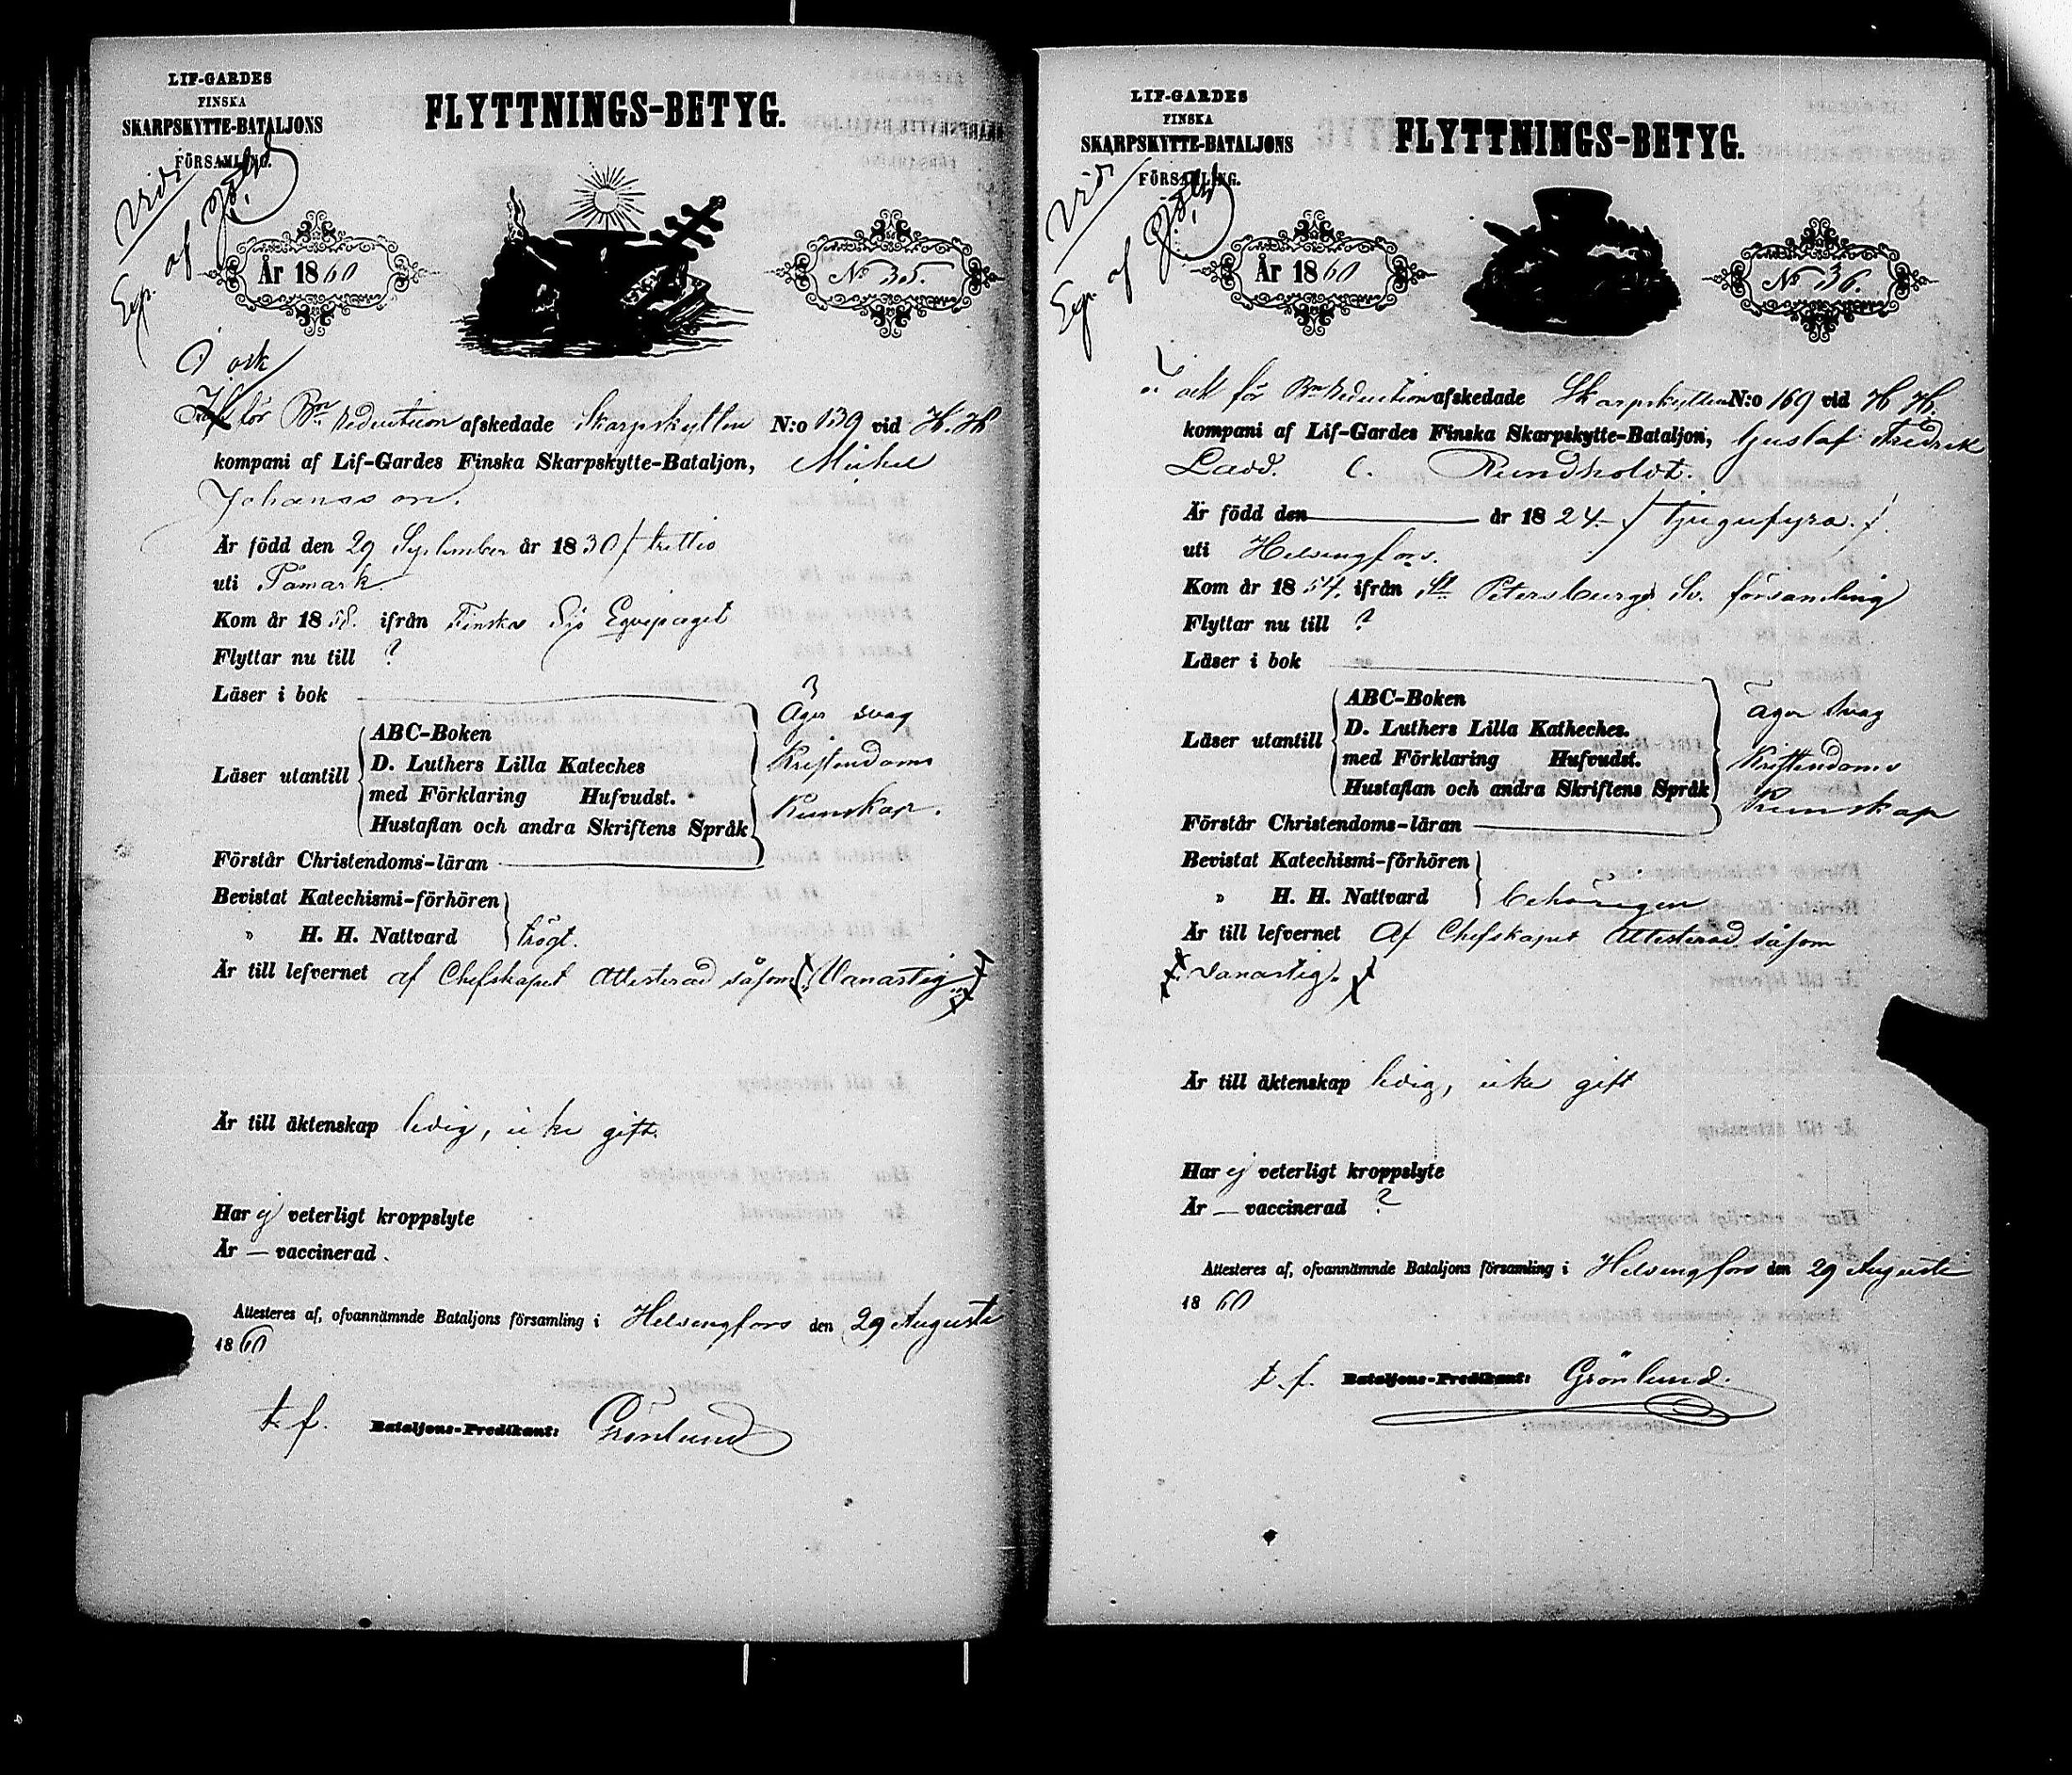 LIF-GARDES
FINSKA
SKARPSKYTTE-BATALJONS
FÖRSAMLING.
FLYTTNINGS-BETYG.
År 1860
No 35.
I och
för Bns Reduction afskedade Skarpskytten N:o 139 vid H. H
kompani af Lif-Gardes Finska Skarpskytte-Bataljon, Mickel
Johansson.
Är född den 29 September år 1830 / trettio
uti Påmark
Kom år 1858. ifrån Finska Sjö Eqvipaget
Flyttar nu till ?
Läser i bok
Läser utantill
ABC-Boken
D. Luthers Lilla Kateches
med Förklaring Hufvudst.
Hustaflan och andra Skriftens Språk
Äger svag
Kristendoms
Kunskap.
Förstår Christendoms-läran
Bevistat Katechismi-förhören
" H. H. Nattvard
trögt.
Är till lefvernet af Chefskapet Attesterad såsom "Vanartig"
Är till äktenskap ledig, icke gift.
Har ej veterligt kroppslyte
Är — vaccinerad.
Attesteres af, ofvannämnde Bataljons församling i Helsingfors den 29 Augusti
1860
t. f. Bataljons-Predikant: Grönlund
LIF-GARDES
FINSKA
SKARPSKYTTE-BATALJONS
FÖRSAMLING.
FLYTTNINGS-BETYG.
År 1860
No 36.
I och för Bns Reduction afskedade Skarpskytten N:o 169 vid H. H.
kompani af Lif-Gardes Finska Skarpskytte-Bataljon, Gustaf Fredrik
Rundholdt.
Är född den — år 1824 — / tjugufyra. /.
uti Helsingfors.
Kom år 1854. ifrån St Petersburgs Sv. församling
Flyttar nu till ?
Läser i bok
Läser utantill
ABC-Boken
D. Luthers Lilla Katheches.
med Förklaring Hufvudst.
Hustaflan och andra Skriftens Språk
äger svag
Kristendoms
Kunskap
Förstår Christendoms-läran
Bevistat Katechismi-förhören
" H. H. Nattvard
behörigen
Är till lefvernet Af Chefskapet Attesterad såsom
"vanartig"
Är till äktenskap ledig, icke gift
Har ej veterligt kroppslyte
Är — vaccinerad ?
Attesteres af, ofvannämnde Bataljons församling i Helsingfors den 29 Augusti
1860
t. f. Bataljons-Predikant: Grönlund.